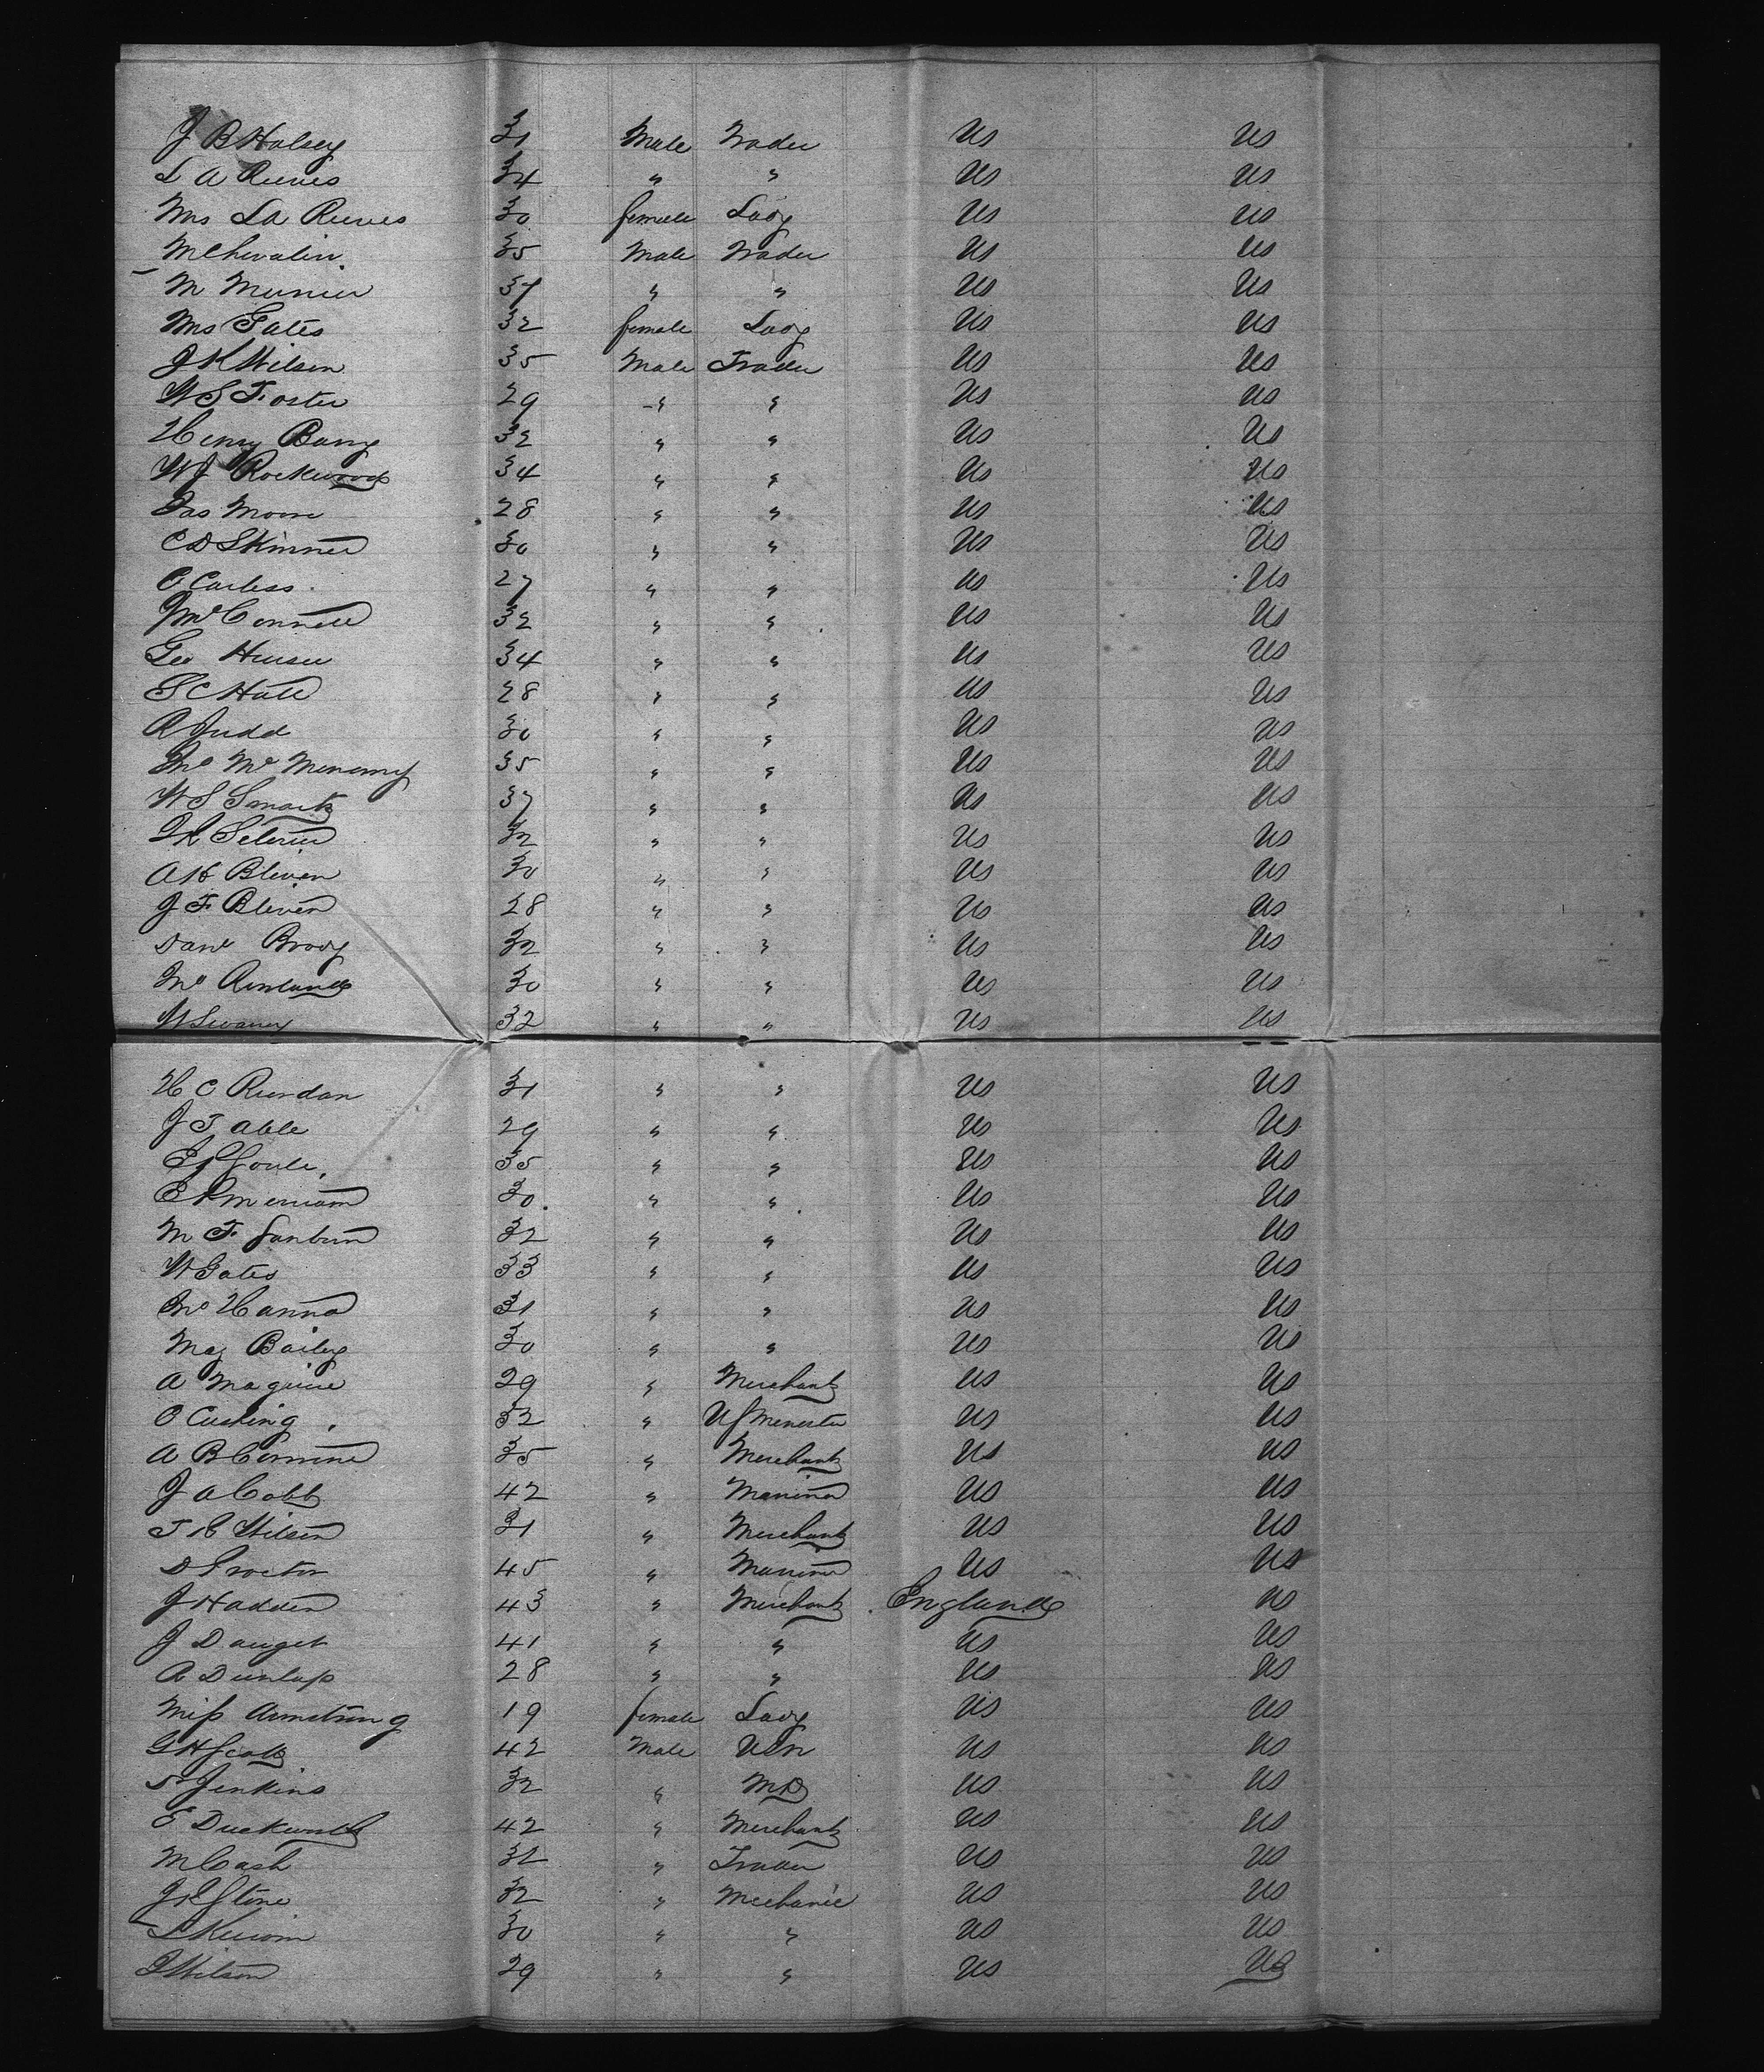 J B Halsey 31 Male Trader US US
L A Reeves 34 " " US US
Mrs L A Reeves 30 female Lady US US
M Chevalier 35 Male Trader US US
M Munier 37 " " US US
Mrs Gates 32 female Lady US US
J K Wilson 35 Male Trader US US
W S Foster 29 " " US US
Henry Barry 32 " " US US
W J Rockwood 34 " " US US
Jas Moore 28 " " US US
C D Skinner 30 " " US US
C Carless 27 " " US US
J McConnell 32 " " US US
Geo 34 " " US US
S C Hall 28 " " US US
R Judd 30 " " US US
Jno McMenomy 35 " " US US
W S Smart 37 " " US US
32 " " US US
A H Bliven 30 " " US US
J F Bliven 28 " " US US
Danl Brody 32 " " US US
Jno Rowland 30 " " US US
W Swaney 32 " " US US
H C Reardan 31 " " US US
J T Able 29 " " US US
E Soule 35 " " US US
E P Merriam 30 " " US US
M F Sanburn 32 " " US US
W Gates 33 " " US US
Jno Hanna 31 " " US US
Maj Bailey 30 " " US US
A Maguire 29 " Merchant US US
C Cushing 52 " US Menester US US
A B Cornine 35 " Merchant US US
J A Cobb 42 " Mariner US US
J C Wilson 31 " Merchant US US
D Proctor 45 " Mariner US US
J Hadden 43 " Merchant England US
J Dauget 41 " " US US
A Dunlap 28 " " US US
Miss Armstrong 19 female Lady US US
G H Scott 42 Male USN US US
S Jenkins 32 " MD US US
E Duckworth 42 " Merchant US US
M Cash 32 " Trader US US
J P Stone 32 " Mechanic US US
30 " " US US
J Wilson 29 " " US US